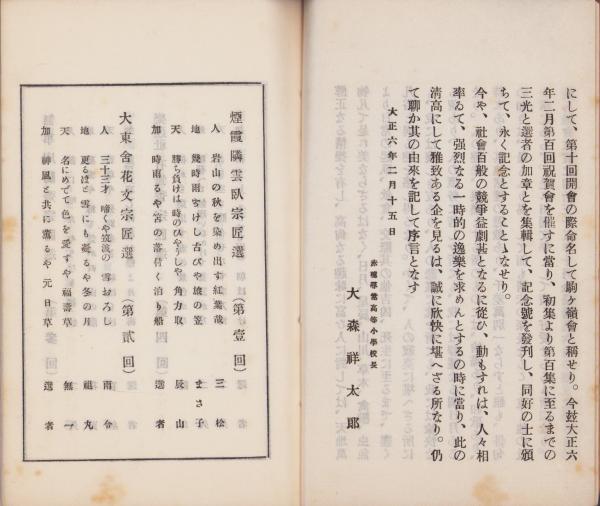 にして、第十回開會の際命名して駒ヶ嶺會と稱せり。今玆大正六
年二月第百回祝賀會を催すに當り、初集より第百集に至るまでの
三光と選者の加章とを集輯して、記念號を發刊し、同好の士に頒
ちて、永く記念とすることゝなせり。
今や、社會百般の競爭益劇甚となるに從ひ、動もすれば、人々相
率ゐて、强烈なる一時的の逸樂を求めんとするの時に當り、此の
淸高にして雅致ある企を見るは、誠に欣快に堪へざる所なり。仍
て聊か其の由來を記して序言となす
大正六年二月十五日
尋常高等小學校長
大森祥太郞
煙霞隣雲臥宗匠選（第壹回）
人 岩山の秋を染め出す紅葉哉 三松
地 幾時雨客けし古びや坡の笠 まさ子
天 勝ち負けは時のひやうしや角力取 辰山
加 時雨るや宮の落付く泊り船 選者
大東舍花文宗匠選（第貳回）
人 三十三才啼くや筑波の雪おろし 雨令
地 更るほど雪にも凝るや冬の月 祖丸
天 名にめでて色を愛すや福壽草 無一
加 神風と共に薰るや元日草 選者